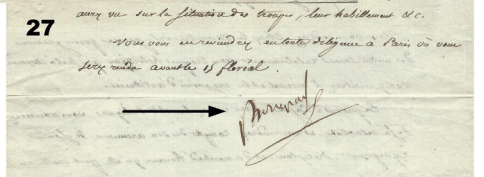 27
aurez vu sur la situation des troupes, leur habillement &c.
Vous vous en reviendrez en toute diligence à Paris où vous
serez rendu avant le 15 floréal.
Bonaparte